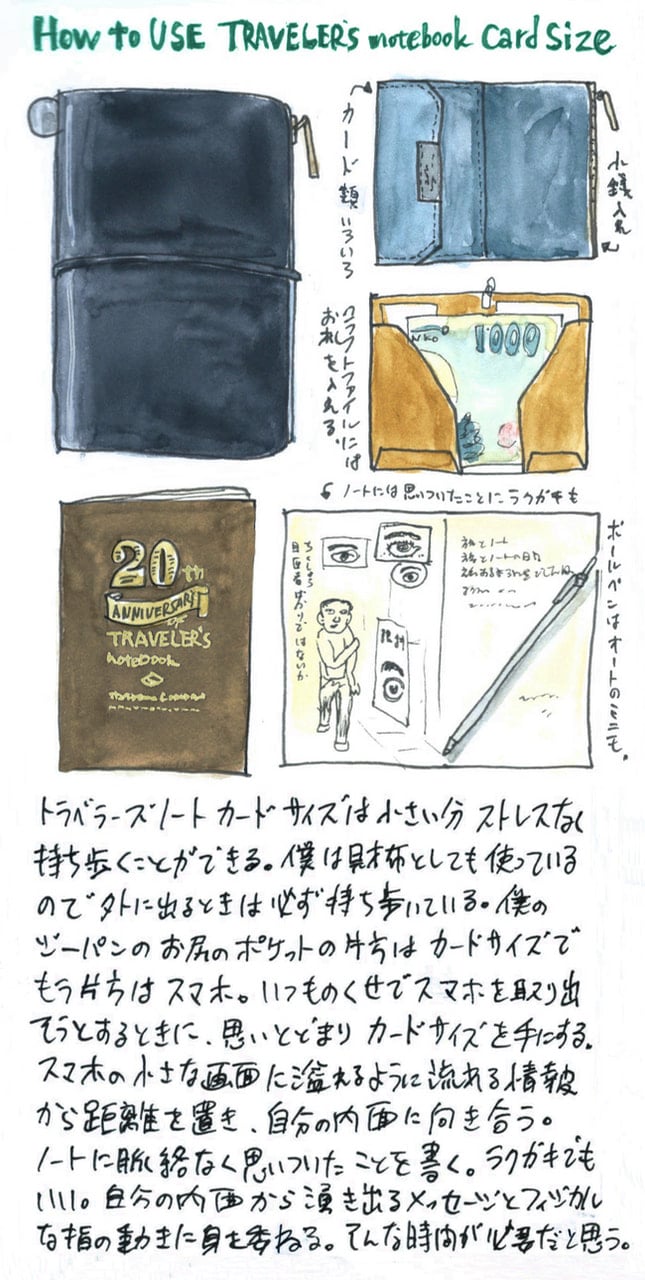 How to USE TRAVELER'S notebook Card Size
カード類いろいろ
小銭入れ
クラフトファイルには
お札を入れる。
1000
ノートには思いついたことにラクガキも
20th
ANNIVERSARY
OF
TRAVELER'S
notebook
ボールペンはオートのミニモ。
ばかりではないか
旅とノート
トラベラーズノート カードサイズは小さい分 ストレスなく
持ち歩くことができる。僕は財布としても使っている
ので外に出るときは必ず持ち歩いている。僕の
ジーパンのお尻のポケットの片方は カードサイズで
もう片方は スマホ。いつものくせでスマホを取り出
そうとするときに、思いとどまり カードサイズを手にする。
スマホの小さな画面に溢れるように流れる情報
から距離を置き、自分の内面に向き合う。
ノートに脈絡なく思いついたことを書く。ラクガキでも
いい。自分の内面から湧き出るメッセージとフィジカル
な指の動きに身を委ねる。そんな時間が必要だと思う。